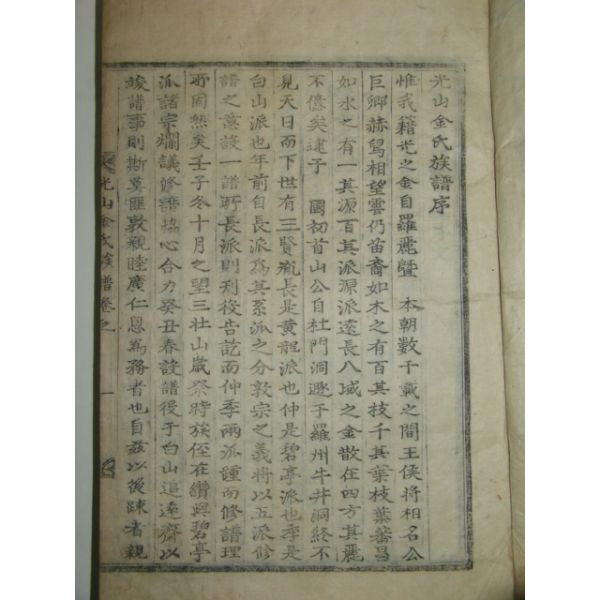 光山金氏族譜序
惟我籍光之金自羅麗曁 本朝數千載之間王侯將相名公
巨卿赫舄相望雲仍苗裔如木之有百其枝千其葉枝葉蕃昌
如水之有一其源百其派源派遠長八域之金散在四方其麗
不億矣逮于 國初首山公自杜門洞遯于羅州牛井洞終不
見天日而下世有三賢胤長是黃龍派也仲是碧亭派也季是
白山派也年前自長派為其系派之分敦宗之義將以五派修
譜之意設一譜所長派則刋役告訖而仲季兩派踵而修譜理
所固然矣壬子冬十月之望三壯山歲祭時族侄在纘與碧亭
派諸宗爛議修譜協心合力癸丑春設譜役于白山追遠齋以
竣譜事則斯莫匪敦親睦廣仁恩為務者也自玆以後踈者親
光山金氏族譜卷之 一